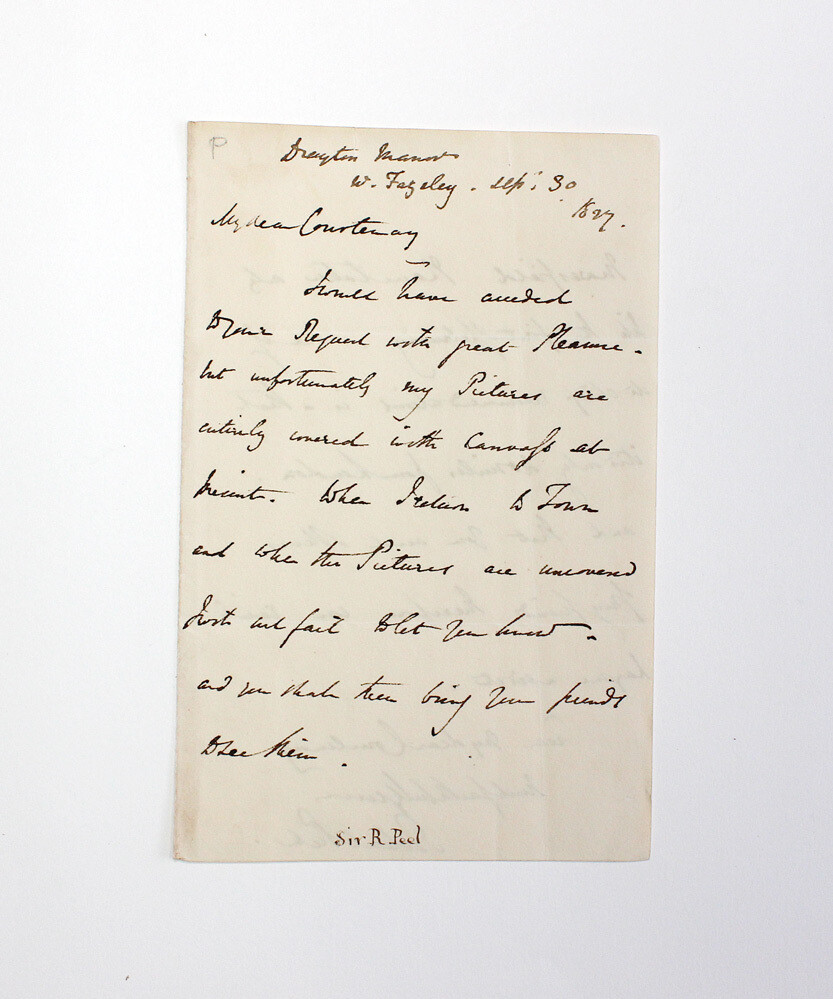 P
Drayton Manor
nr. Fazeley. Sep: 30
1827.
My dear Courtenay
I would have acceded
to your Request with great Pleasure -
but unfortunately my Pictures are
entirely covered with Canvass at
present. When I return to Town
and when the Pictures are uncovered
I will not fail to let you know -
and you shall then bring your friends
to see them.
Sir R. Peel